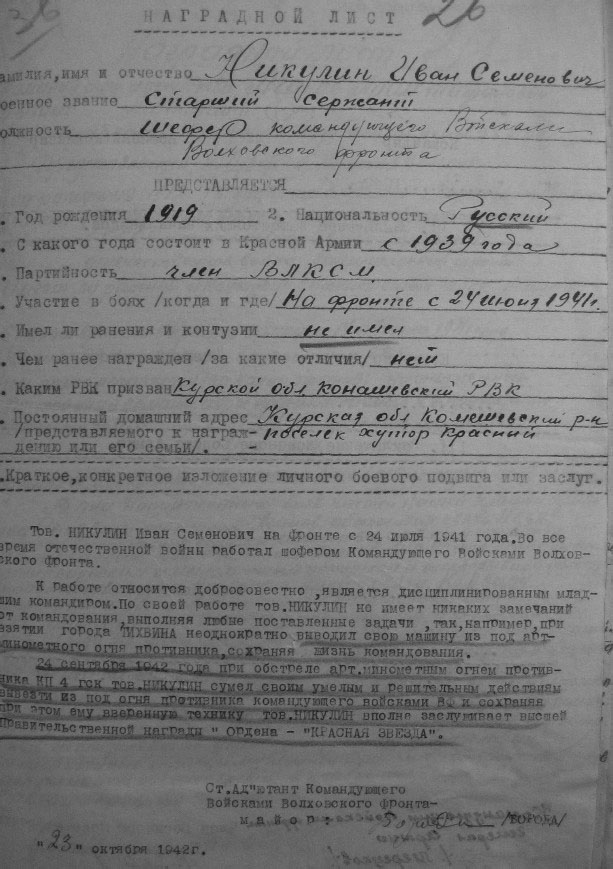 26
НАГРАДНОЙ ЛИСТ
амилия,имя и отчество Никулин Иван Семенович
оенное звание Старший сержант
олжность шофер командующего Войсками
Волховского фронта
ПРЕДСТАВЛЯЕТСЯ
. Год рождения 1919 2. Национальность Русский
. С какого года состоит в Красной Армии с 1939 года
. Партийность член ВЛКСМ.
. Участие в боях /когда и где/ На фронте с 24 июля 1941г.
. Имел ли ранения и контузии не имел
. Чем ранее награжден /за какие отличия/ нет
. Каким РВК призван Курской обл Конашевский РВК
. Постоянный домашний адрес Курская обл Комешевский р-н
/представляемого к награж- поселок хутор Красний
дению или его семьи/. -
.Краткое,конкретное изложение личного боевого подвига или заслуг.
Тов. НИКУЛИН Иван Семенович на фронте с 24 июля 1941 года.Во все
время отечественной войны работал шофером Командующего Войсками Волхов-
ского фронта.
К работе относится добросовестно ,является дисциплинированным млад-
шим командиром.По своей работе тов.НИКУЛИН не имеет никаких замечаний
от командования,выполняя любые поставленные задачи ,так,например,при
взятии города ТИХВИНА неоднократно выводил свою машину из под арт-
минометного огня противника,сохраняя жизнь командования.
24 сентября 1942 года при обстреле арт.минометным огнем против-
ника КП 4 гск тов.НИКУЛИН сумел своим умелым и решительным действиям
вывезти из под огня противника командующего войсками ВФ и сохраняя
при этом ему вверенную технику тов.НИКУЛИН вполне заслуживает высшей
правительственной награды " Ордена - "КРАСНАЯ ЗВЕЗДА".
Ст.Ад"ютант Командующего
Войсками Волховского Фронта-
майор: /БОРОДА/
"23" октября 1942г.